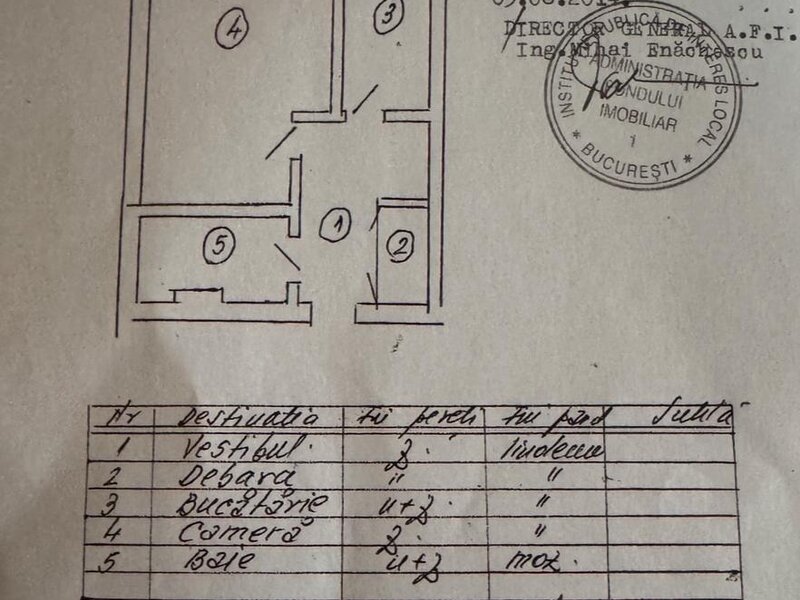 DIRECTOR GENERAL A.F.I.
Ing. Mihai Enăchescu
INSTITUȚIE PUBLICĂ DE INTERES LOCAL
ADMINISTRAȚIA
FONDULUI
IMOBILIAR
1
* BUCUREȘTI *
4
3
1
5
2
Nr Destinația Fin pereți Fin pard
1 Vestibul z. linoleum
2 Debara " "
3 Bucătărie u+z. "
4 Cameră z. "
5 Baie u+z moz.